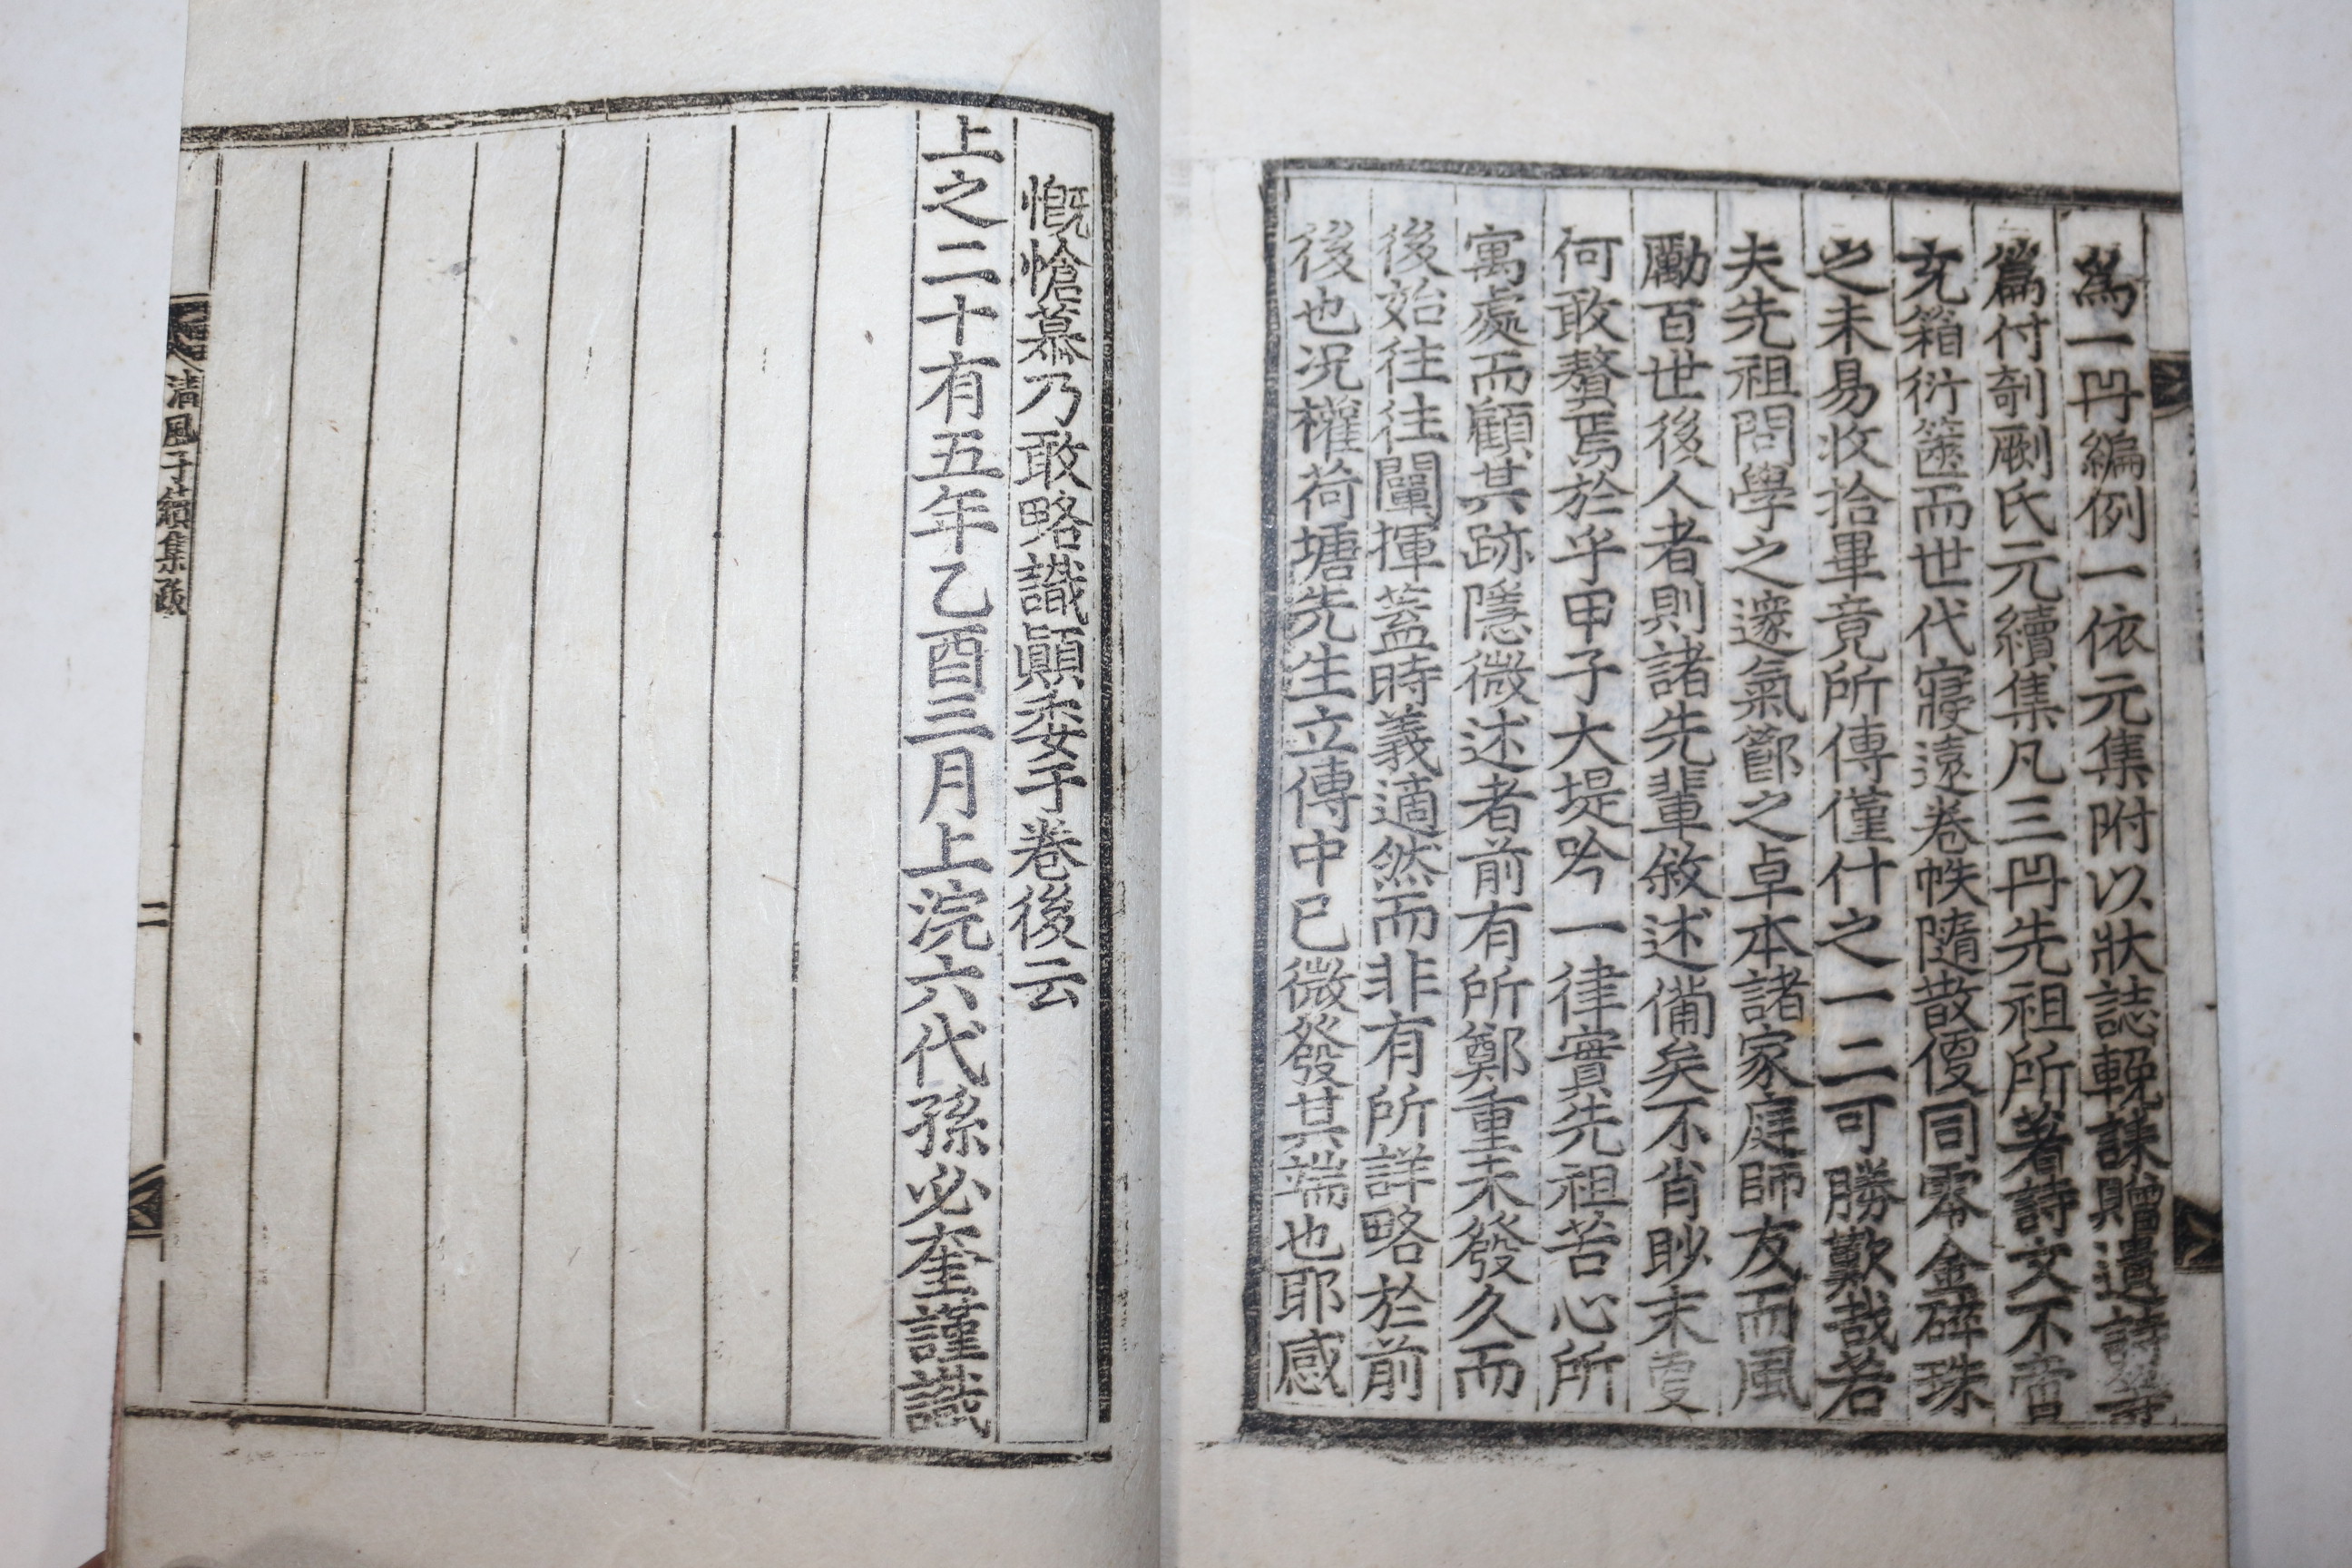 爲一冊編例一依元集附以狀誌輓誄贈遺詩
爲付剞劂氏元續集凡三冊先祖所著詩文不啻
充箱衍篋而世代寢遠卷帙隨散傻同零金碎珠
之未易收拾畢竟所傳僅什之一二可勝歎哉若
夫先祖問學之邃氣節之卓本諸家庭師友而風
勵百世後人者則諸先輩敘述備矣不肖眇末
何敢贅焉於乎甲子大堤吟一律實先祖苦心所
寓處而顧其跡隱微述者前有所鄭重未發久而
後始往往闡揮蓋時義適然而非有所詳略於前
後也况權荷塘先生立傳中已微發其端也耶感
慨愴慕乃敢略識顚委于卷後云
上之二十有五年乙酉三月上浣六代孫必奎謹識
清風子續集跋
二